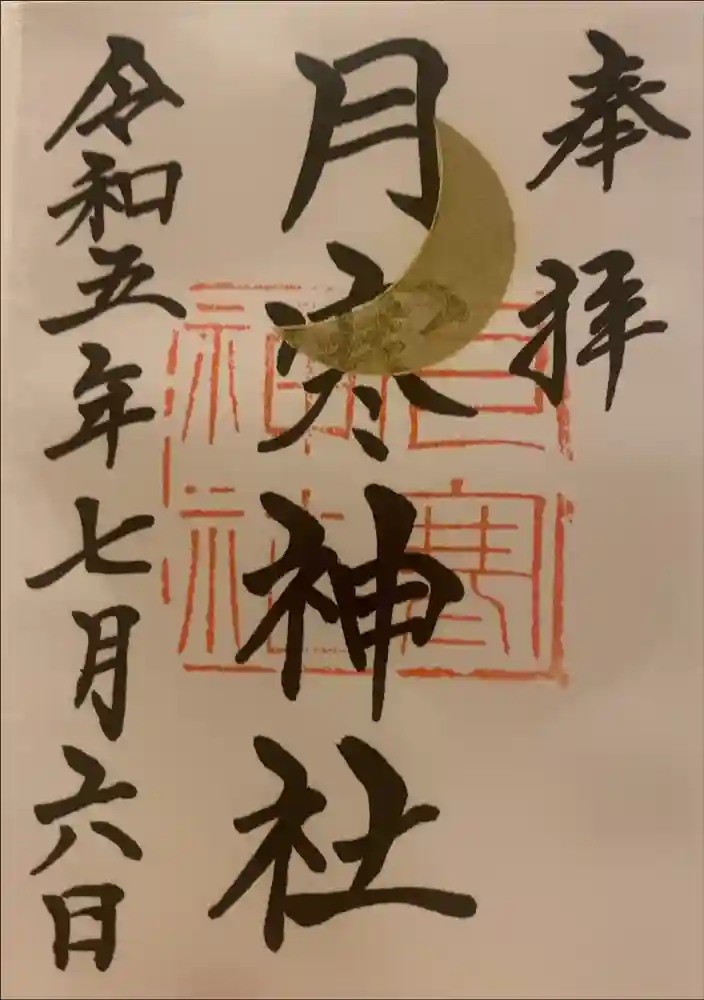 奉拝
月寒神社
令和五年七月六日
月寒神社